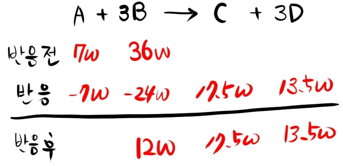 A + 3B → C + 3D
반응전 7w 36w
반응 -7w -24w 17.5w 13.5w
반응후 12w 17.5w 13.5w